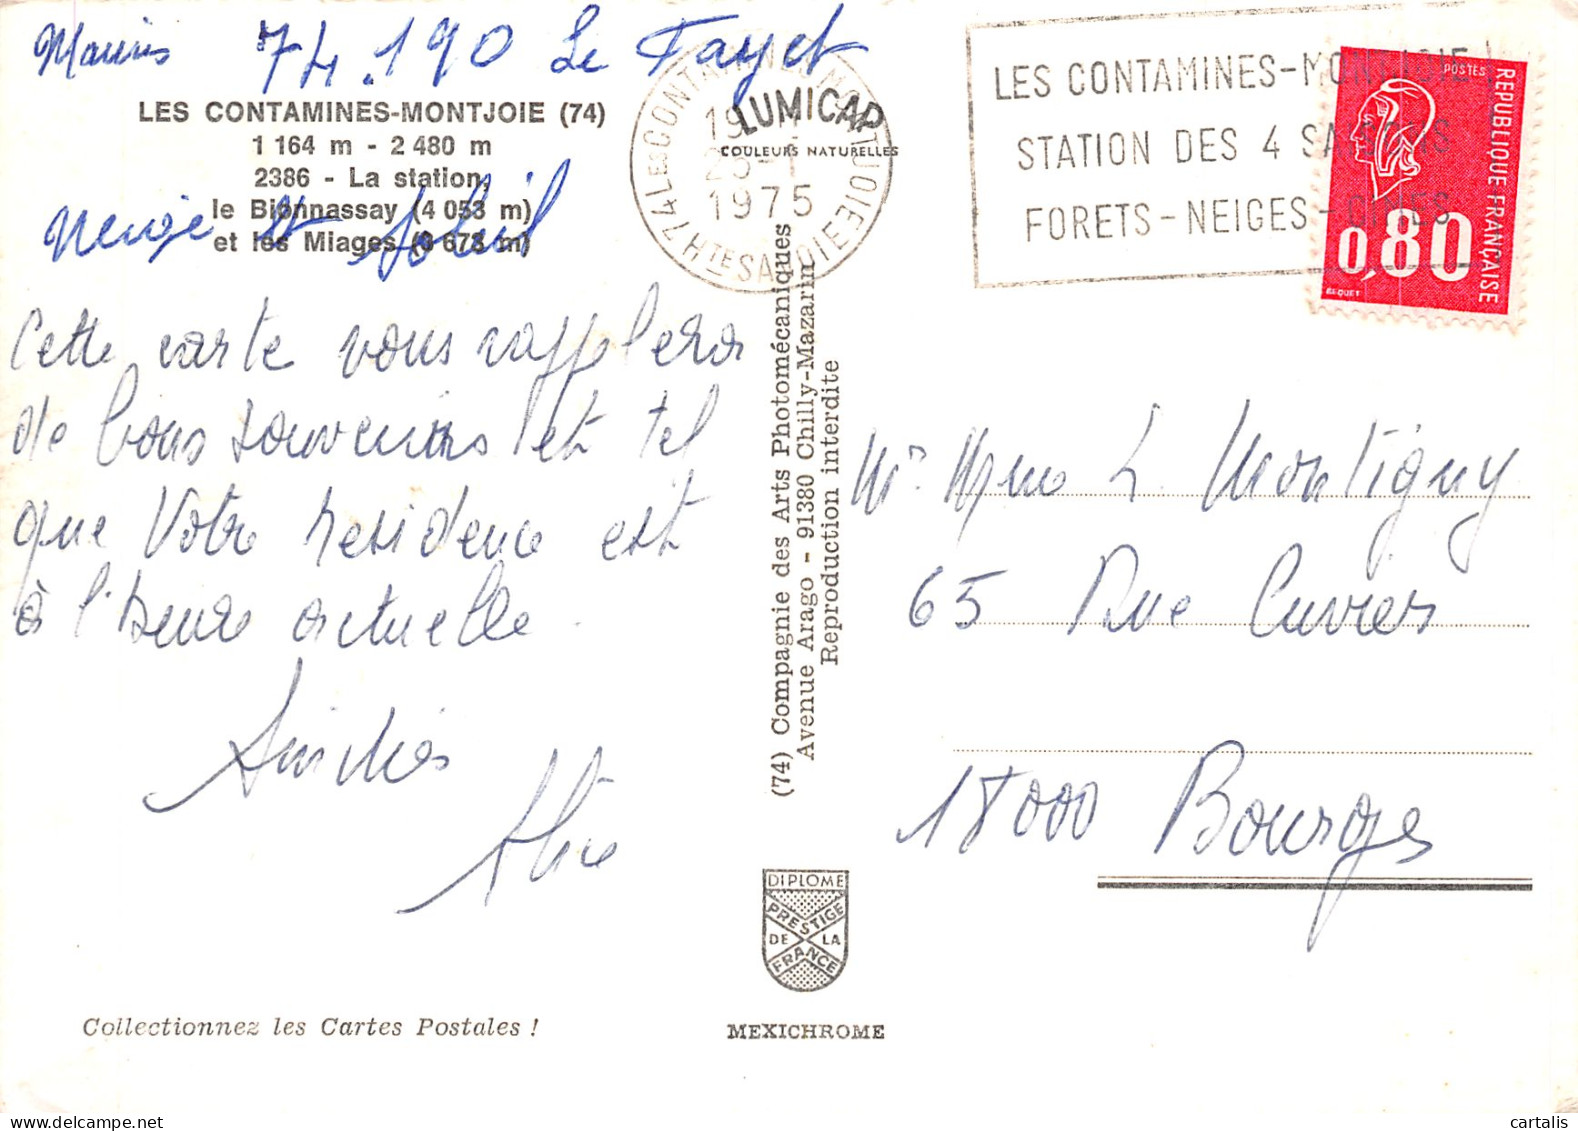 74.190 Le Fayet
LES CONTAMINES-MONTJOIE (74)
1 164 m - 2 480 m
2386 - La station,
le Bionnassay (4 053 m)
et les Miages (3 673 m)
Neige et Soleil
Cette carte vous rappellera
de bons souvenirs et tel
que Votre residence est
à l'heure actuelle.
Amitiés
LUMICAP
COULEURS NATURELLES
74 LES CONTAMINES-MONTJOIE
HTE SAVOIE
1975
LES CONTAMINES-MONTJOIE
STATION DES 4 SAISONS
FORETS-NEIGES-CIMES
POSTES
REPUBLIQUE FRANÇAISE
0,80
BEQUET
(74) Compagnie des Arts Photomécaniques
Avenue Arago - 91380 Chilly-Mazarin
Reproduction interdite
Mr Mme L. Montigny
65 Rue Cuvier
18000 Bourges
DIPLOME
PRESTIGE
DE LA
FRANCE
Collectionnez les Cartes Postales !
MEXICHROME
cartalis